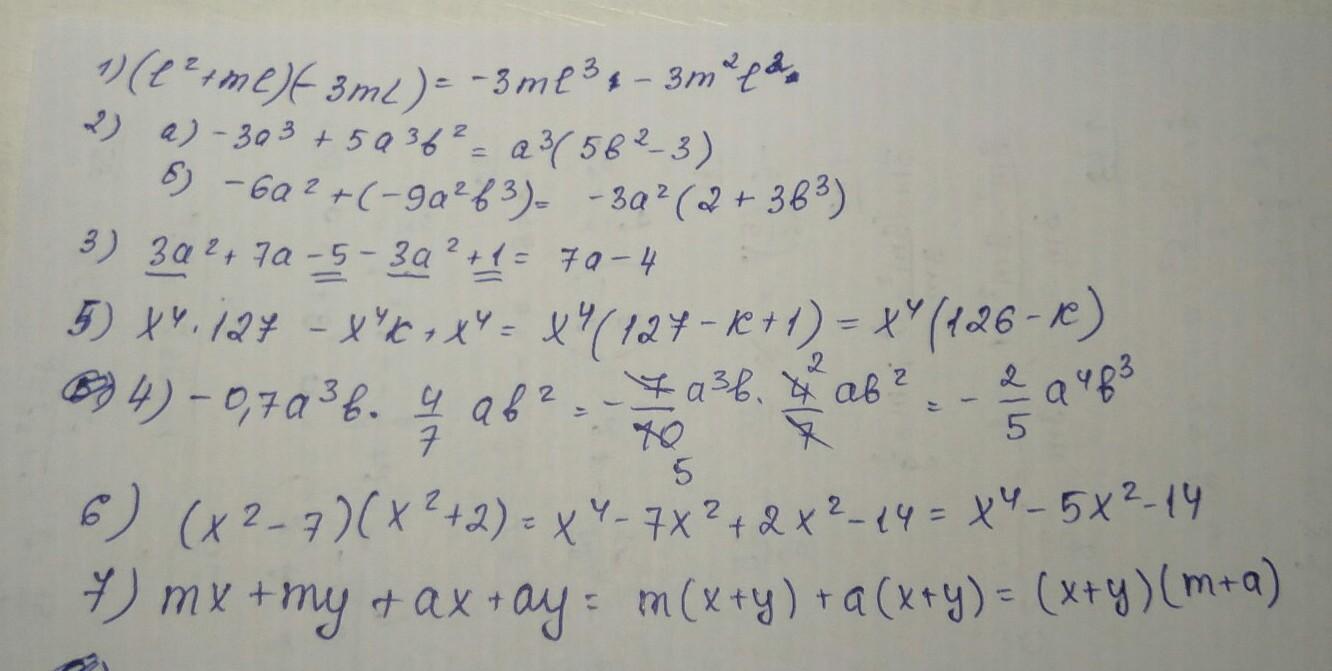 1) (l² + ml)(-3ml) = -3ml³ - 3m²l².
2) а) -3a³ + 5a³b² = a³(5b² - 3)
б) -6a² + (-9a²b³) = -3a²(2 + 3b³)
3) 3a² + 7a - 5 - 3a² + 1 = 7a - 4
5) x⁴·127 - x⁴к + x⁴ = x⁴(127 - к + 1) = x⁴(126 - к)
4) -0,7a³b · 4/7 ab² = - 7/10 a³b · 4/7 ab² = - 2/5 a⁴b³
6) (x² - 7)(x² + 2) = x⁴ - 7x² + 2x² - 14 = x⁴ - 5x² - 14
7) mx + my + ax + ay = m(x+y) + a(x+y) = (x+y)(m+a)